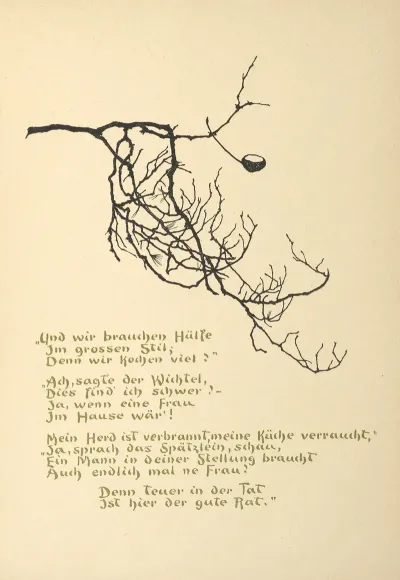 „Und wir brauchen Hülfe
Im grossen Stil;
Denn wir kochen viel?"
„Ach, sagte der Wichtel,
Dies find' ich schwer! –
Ja, wenn eine Frau
Im Hause wär'!
Mein Herd ist verbrannt, meine Küche verraucht,"
„Ja, sprach das Spätzlein, schau,
Ein Mann in deiner Stellung braucht
Auch endlich mal ne Frau!
Denn teuer in der Tat
Ist hier der gute Rat."